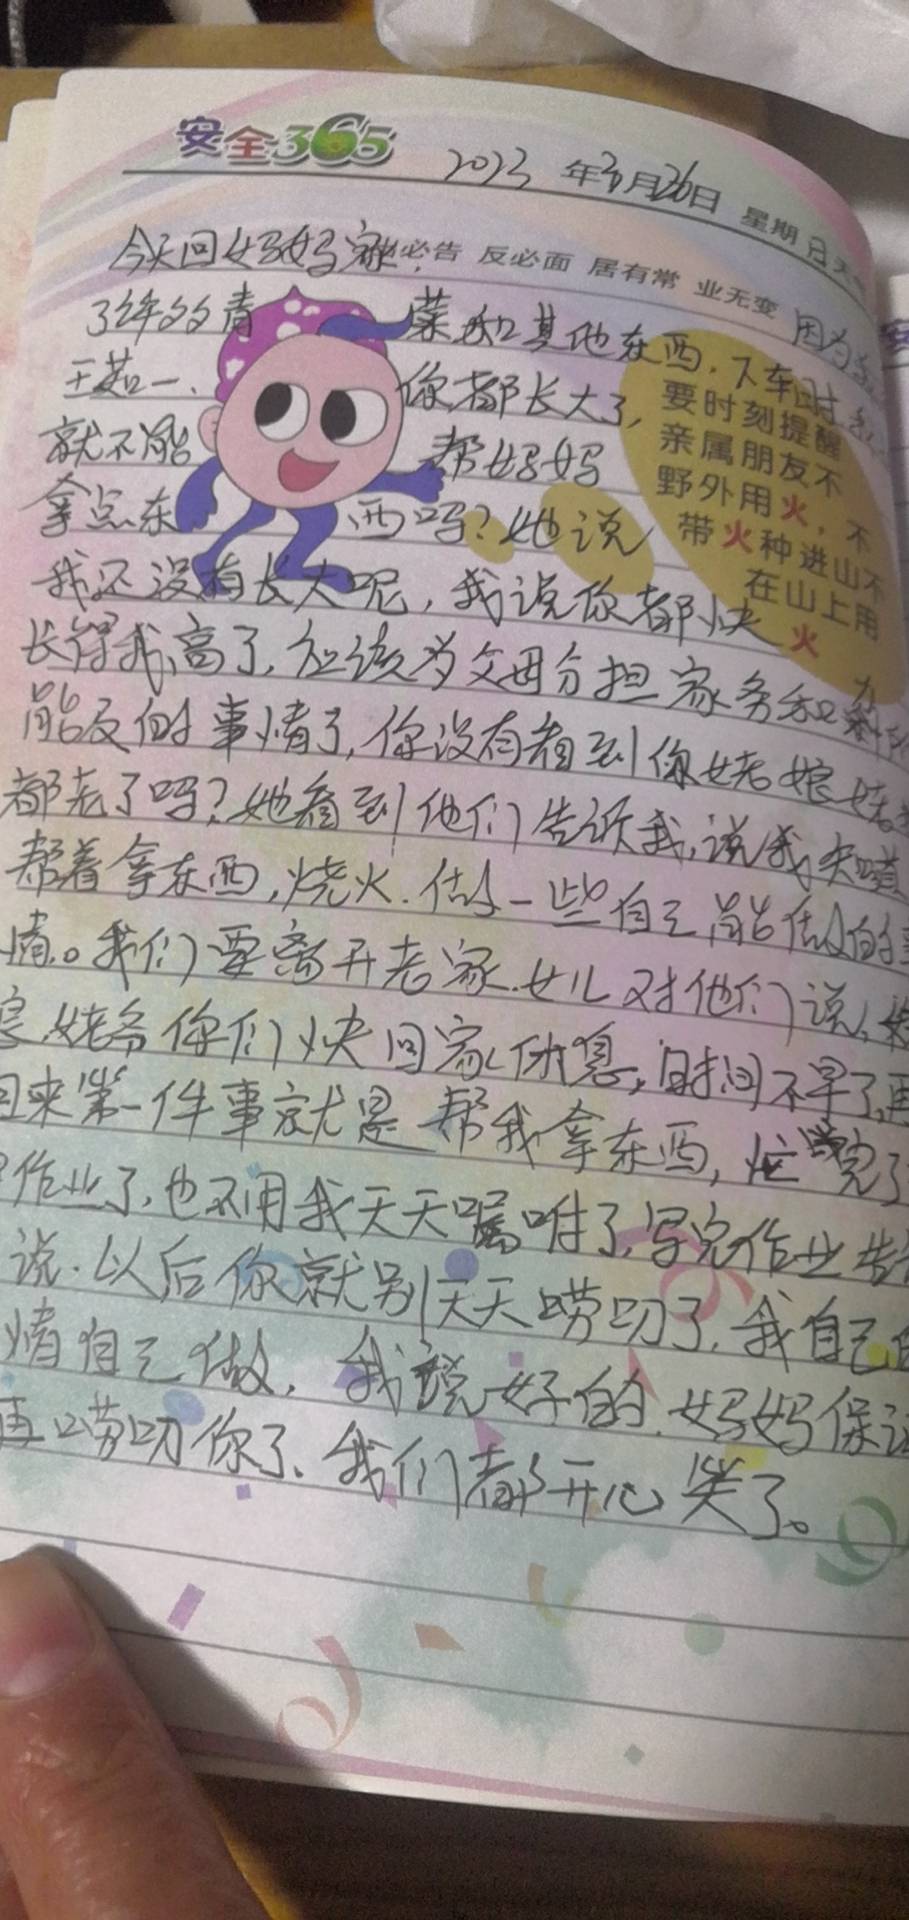 安全365
2023年3月26日 星期日 天
今天回妈妈家 必告 反必面 居有常 业无变 因为
了红的的青菜和其他东西,下车时
王茹一、你都长大了,
就不能帮妈妈
拿点东西吗?她说
要时刻提醒
亲属朋友不
野外用火,不
带火种进山不
在山上用
火
我还没有长大呢,我说你都快
长得我高了,应该为父母分担家务和
能及的事情了,你没有看到你姥娘姥
都老了吗?她看到他们告诉我,说我知道
帮着拿东西,烧火.做一些自己能做的事
情。我们要离开老家.女儿对他们说,姥
姥爷你们快回家休息,时间不早了,再
回来第一件事就是帮我拿东西,忙完了
作业了,也不用我天天嘱咐了,写完作业告
说.以后你就别天天唠叨了.我自己的
情自己做,我说好的.妈妈保证
再唠叨你了.我们都开心笑了。